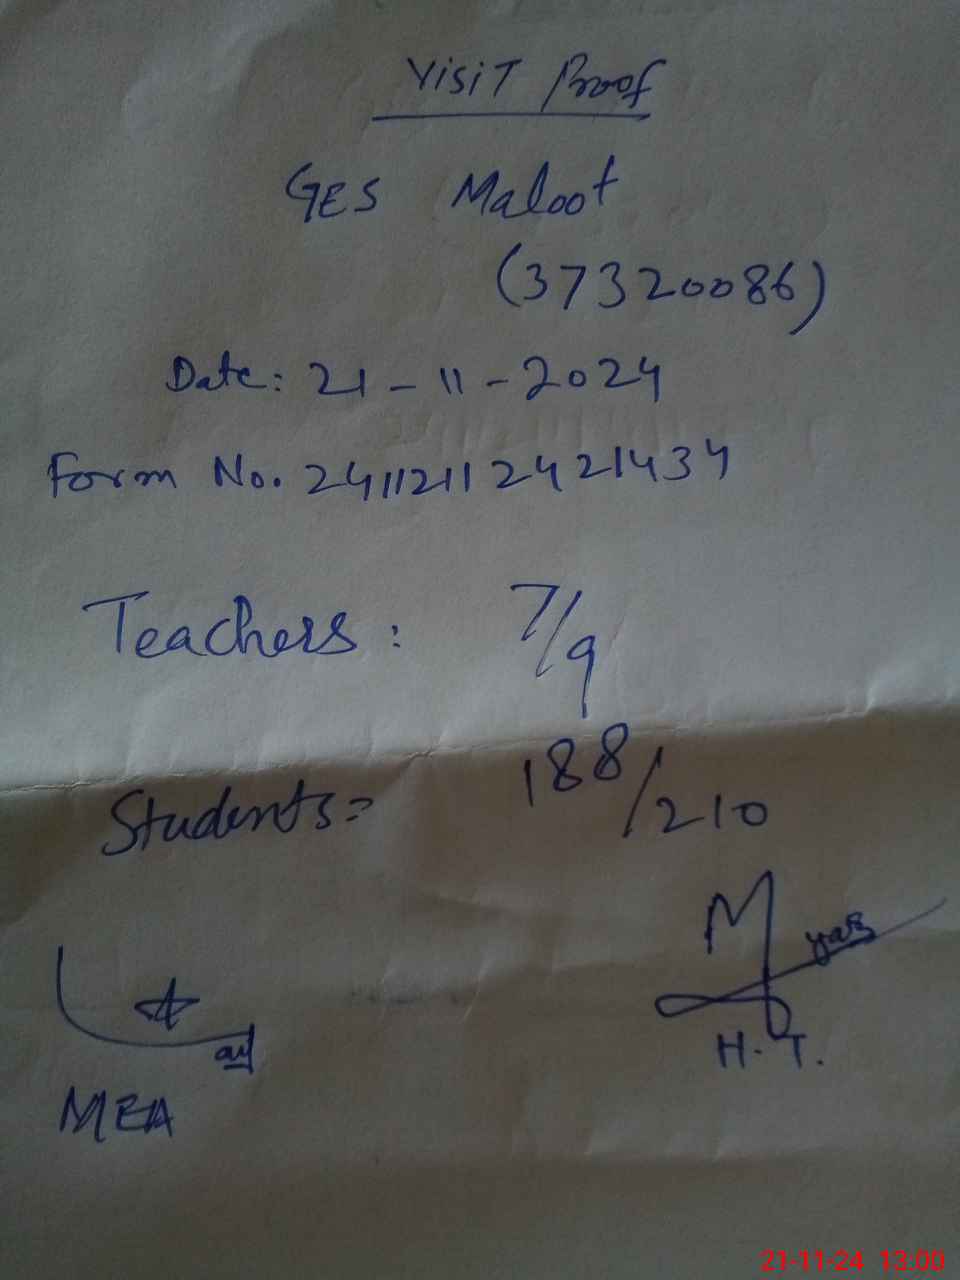 Visit Proof
GES Maloot
(37320086)
Date: 21-11-2024
Form No. 241121124 21434
Teachers: 7/9
Students= 188/210
H.T.
MEA
21-11-24 13:00